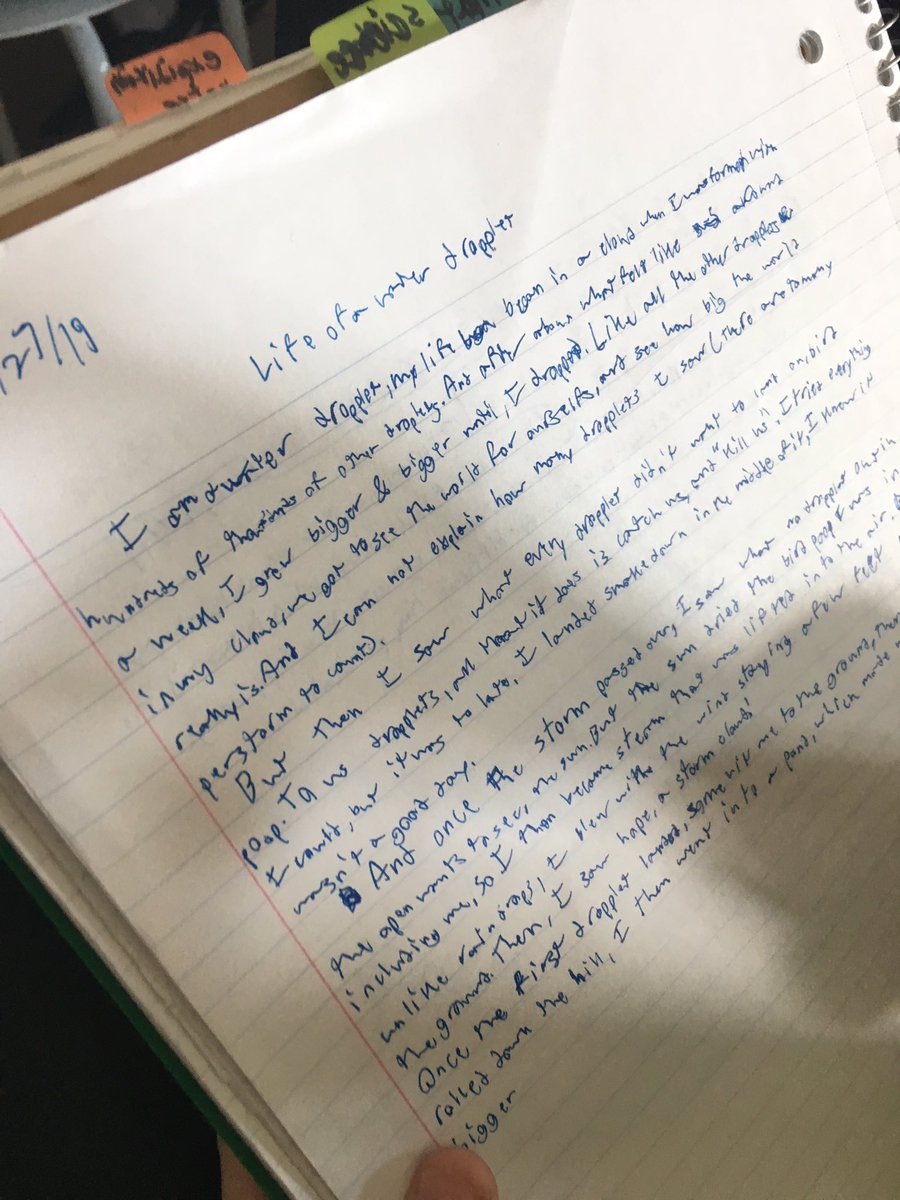 science
/27/19
Life of a water droppler
I am a water droppler, my life began in a cloud when I was formed with
hundreds of thousands of other droplets. And after about what felt like around
a week, I grew bigger & bigger until, I dropped. Like all the other dropplets
in my cloud, we got to see the world for ourselfs, and see how big the world
really is. And I can not explain how many dropplets I saw (there are to many
perstorm to count).
But then I saw what every droppler didn't want to land on, bird
poop. To us dropplets, all that it does is catch us, and "kill us", I tried everything
I could, but it was to late, I landed smackdown in the middle of it, I knew it
wasn't a good day.
And once the storm passed over, I saw what no droppler out in
the open wants to see, the sun. But the sun dried the bird poop I was in
including me, so I then became steam that was lifted into the air.
unlike raindrops, I blew with the wind staying a few feet
the ground. Then, I saw hope, a storm cloud!
Once the first droppler landed, some hit me to the ground, then
rolled down the hill, I then went into a pond, which made
bigger